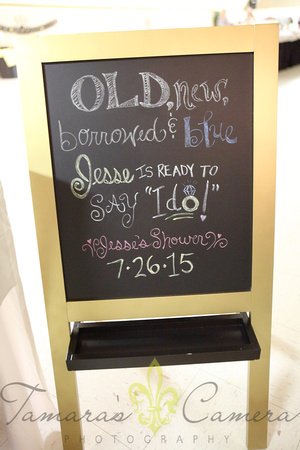 OLD, new,
borrowed & blue
Jesse IS READY TO
SAY "I do!"
Jesse's Shower
7·26·15
Tamaras Camera
PHOTOGRAPHY